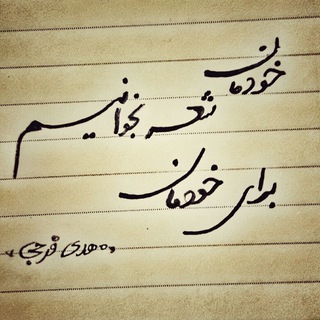 خودمان
شعر بخوانیم
برای خودمان
«مهدی فرجی»